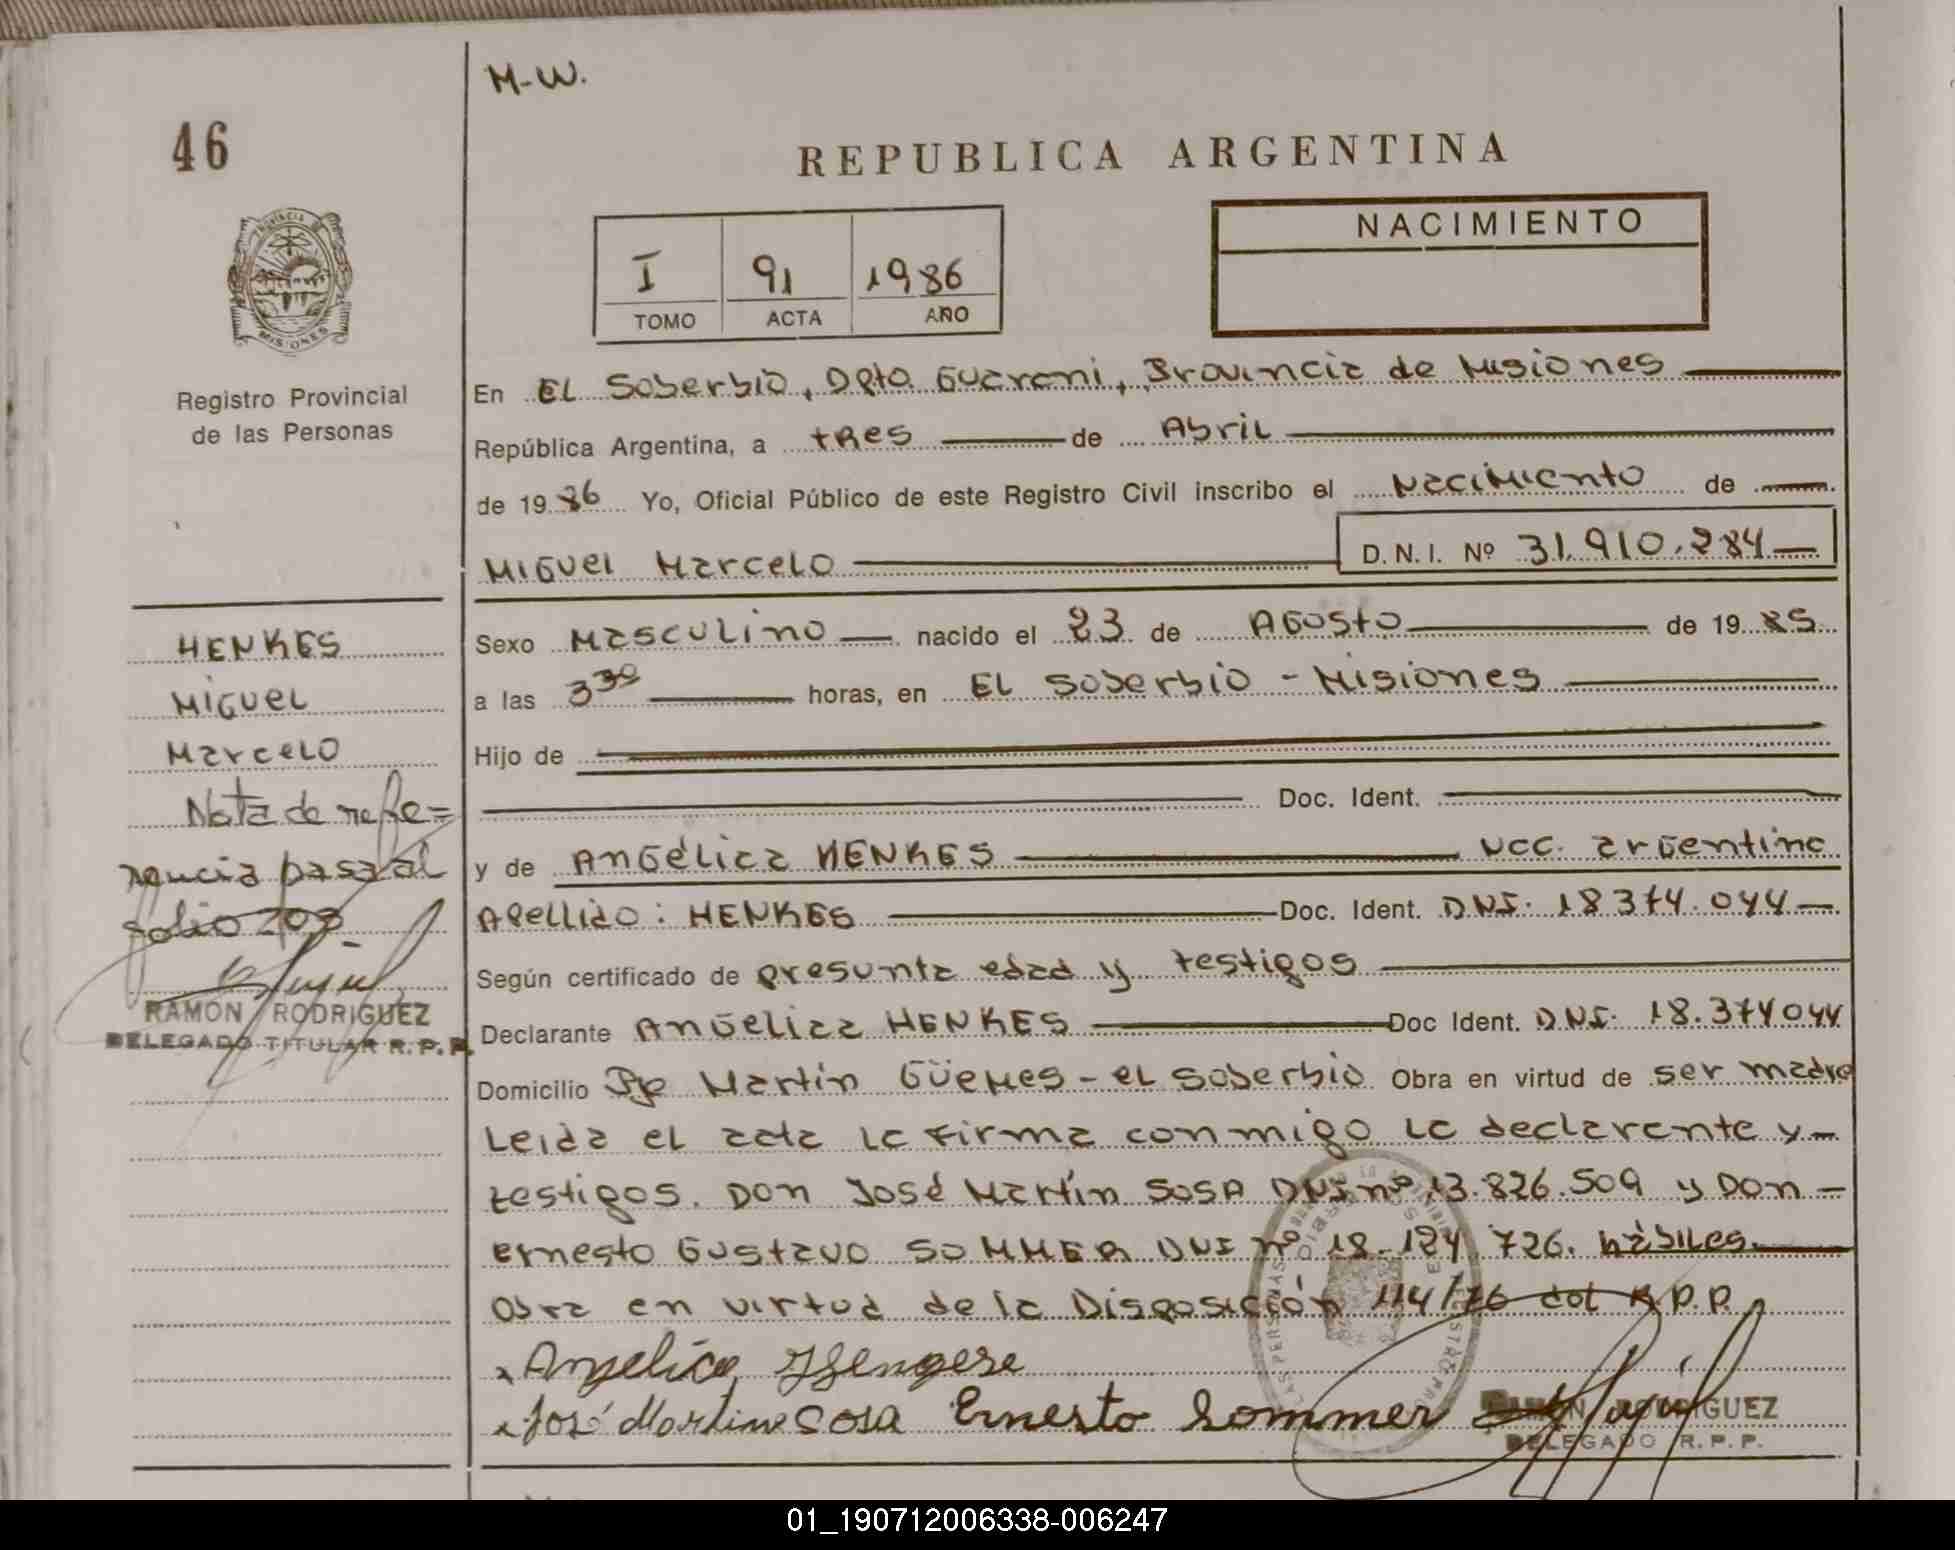 M-W.
46
REPUBLICA ARGENTINA
NACIMIENTO
I 91 1986
TOMO ACTA AÑO
PROVINCIA DE
MISIONES
Registro Provincial
de las Personas
En EL Soberbio, Dpto Guarani, Provincia de Misiones
República Argentina, a tres de Abril
de 1986 Yo, Oficial Público de este Registro Civil inscribo el Nacimiento de
Miguel Marcelo D.N.I. Nº 31.910.284
Sexo Masculino nacido el 23 de Agosto de 1985
a las 3 30 horas, en EL Soberbio - Misiones
Hijo de
Doc. Ident.
y de Angélica HENKES Nac. argentina
Apellido: HENKES Doc. Ident. DNI. 18374.044
Según certificado de presunta edad y testigos
Declarante Angelica HENKES Doc Ident. DNI. 18.374044
Domicilio Pje Martín Güemes - el Soberbio Obra en virtud de ser madre
Leida el acta la firma conmigo la declarante y
testigos. Don José Martín SOSA DNI nº 13.826.509 y Don
ernesto Gustavo SOMMER DNI nº 18.184 726. hábiles.
Obra en virtud de la Disposición 114/76 del R.P.P.
Angelica
José Martin Sosa Ernesto Sommer
RAMON RODRIGUEZ
DELEGADO R.P.P.
HENKES
Miguel
Marcelo
Nota de refe=
rencia pasa al
folio 208
RAMON RODRIGUEZ
DELEGADO TITULAR R.P.P.
01_190712006338-006247